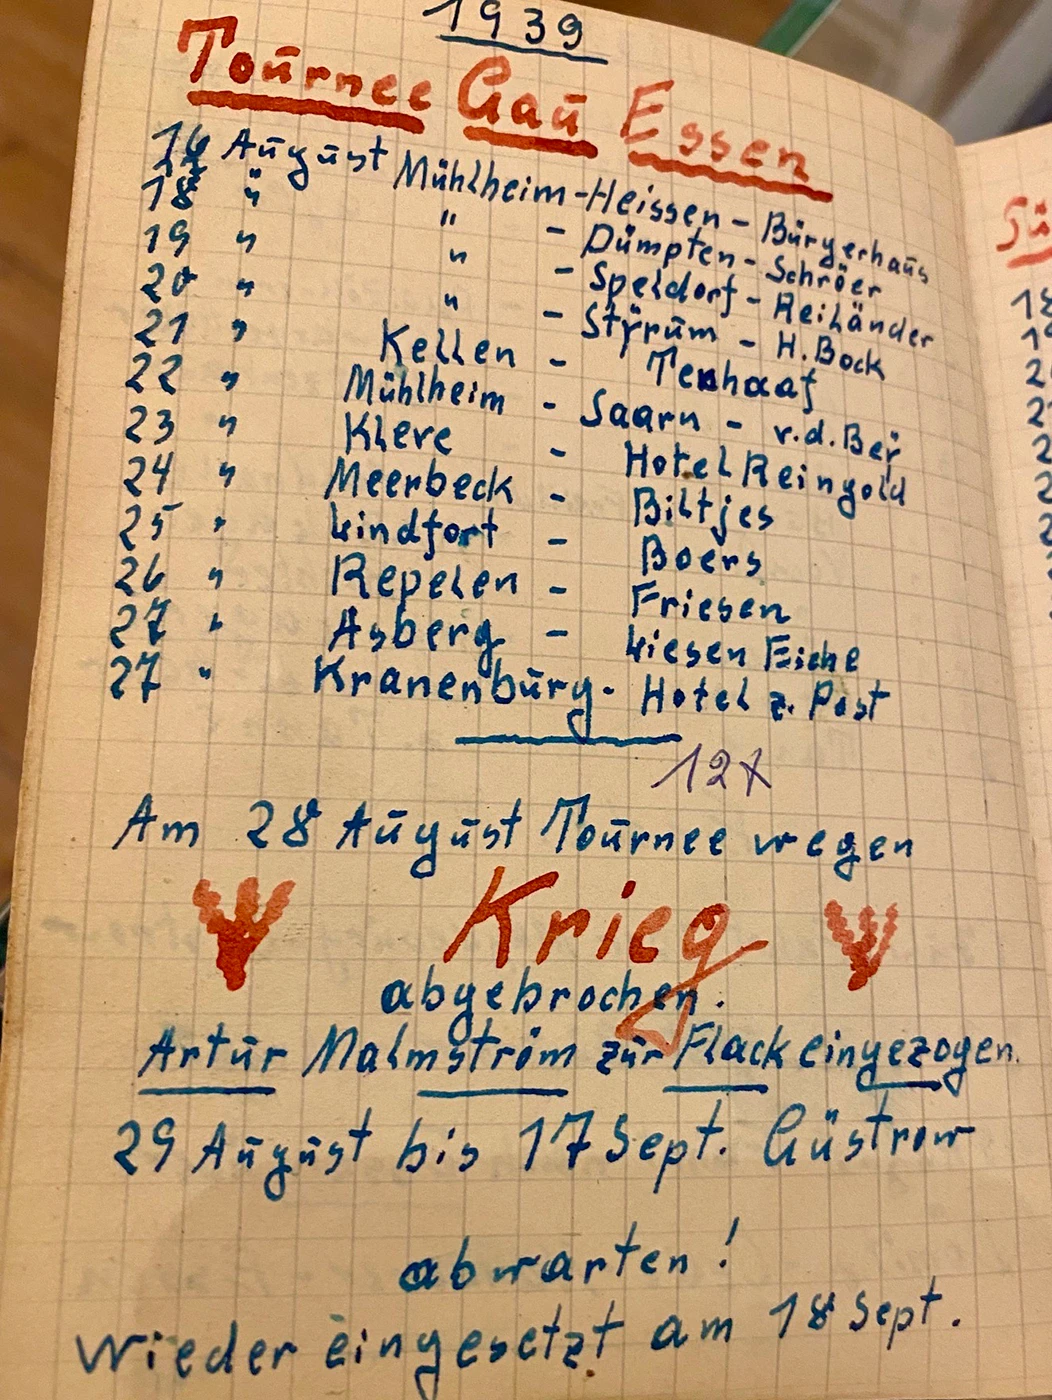 1939
Tournee Gau Essen
16 August Mühlheim-Heissen - Bürgerhaus
18 " " - Dümpten - Schröer
19 " " - Speldorf - Reiländer
20 " " - Styrum - H. Bock
21 " Kellen - Terhaaf
22 " Mühlheim - Saarn - v.d. Bey
23 " Kleve - Hotel Reingold
24 " Meerbeck - Biltjes
25 " Lindfort - Boers
26 " Repelen - Friesen
27 " Asberg - Liesen Eiche
27 " Kranenburg - Hotel z. Post
12x
Am 28 August Tournee wegen
Krieg
abgebrochen.
Artur Malmström zur Flack eingezogen.
29 August bis 17 Sept. Güstrow
abwarten!
Wieder eingesetzt am 18 Sept.
18
19